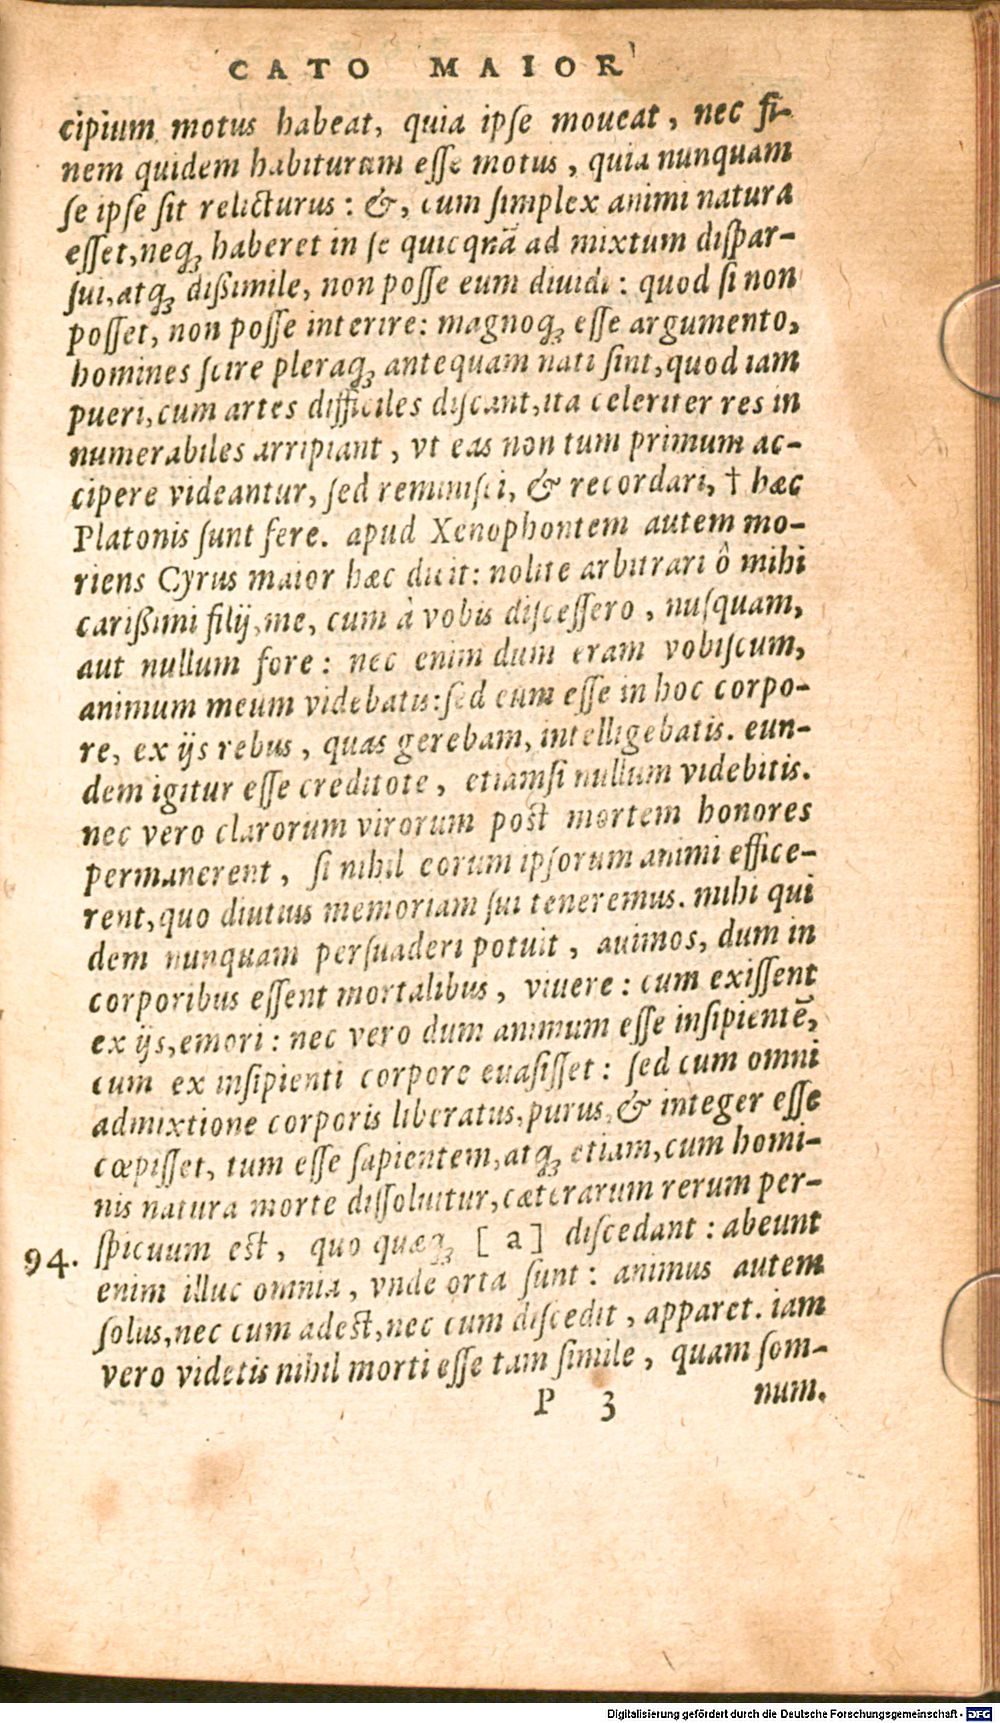 CATO MAIOR
cipium motus habeat, quia ipſe moueat, nec fi-
nem quidem habiturum eſſe motus, quia nunquam
ſe ipſe ſit relicturus: &, cum ſimplex animi natura
eſſet, neqꝫ haberet in ſe quicquã ad mixtum diſpar-
ſui, atqꝫ dißimile, non poſſe eum diuidi: quod ſi non
poſſet, non poſſe interire: magnoqꝫ eſſe argumento,
homines ſcire pleraqꝫ antequam nati ſint, quod iam
pueri, cum artes difficiles diſcant, ita celeriter res in
numerabiles arripiant, vt eas non tum primum ac-
cipere videantur, ſed reminiſci, & recordari, † hæc
Platonis ſunt fere. apud Xenophontem autem mo-
riens Cyrus maior hæc dicit: nolite arbitrari ô mihi
carißimi filij, me, cum à vobis diſceſſero, nuſquam,
aut nullum fore: nec enim dum eram vobiſcum,
animum meum videbatis: ſed eum eſſe in hoc corpo-
re, ex ijs rebus, quas gerebam, intelligebatis. eun-
dem igitur eſſe creditote, etiamſi nullum videbitis.
nec vero clarorum virorum poſt mortem honores
permanerent, ſi nihil eorum ipſorum animi effice-
rent, quo diutius memoriam ſui teneremus. mihi qui
dem nunquam perſuaderi potuit, auimos, dum in
corporibus eſſent mortalibus, viuere: cum exiſſent
ex ijs, emori: nec vero dum animum eſſe inſipientẽ,
cum ex inſipienti corpore euaſiſſet: ſed cum omni
admixtione corporis liberatus, purus, & integer eſſe
cœpiſſet, tum eſſe ſapientem, atqꝫ etiam, cum homi-
nis natura morte diſſoluitur, cæterarum rerum per-
94. ſpicuum eſt, quo quæqꝫ [a] diſcedant: abeunt
enim illuc omnia, vnde orta ſunt: animus autem
ſolus, nec cum adeſt, nec cum diſcedit, apparet. iam
vero videtis nihil morti eſſe tam ſimile, quam ſom-
P 3 num.
Digitalisierung gefördert durch die Deutsche Forschungsgemeinschaft - DFG